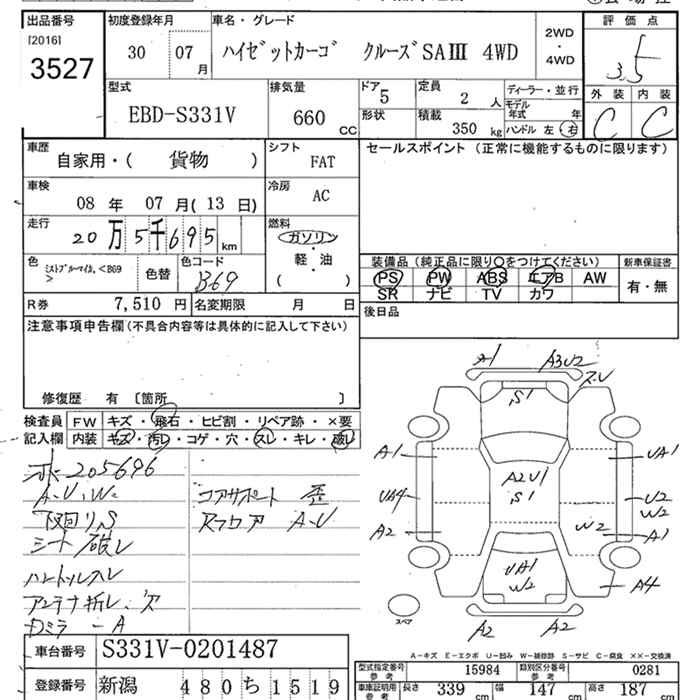 出品番号 初度登録年月 車名・グレード 評価点
[2016]
3527
30 07 月 ハイゼットカーゴ クルーズSAⅢ 4WD
2WD
・
4WD
3.5
型式 排気量 ドア 5 定員 2 人 ディーラー・並行 外装 内装
EBD-S331V 660 CC 形状 積載 350 kg モデル年式 年 C C
ハンドル 左・右
車歴 自家用・( 貨物 ) シフト FAT セールスポイント (正常に機能するものに限ります)
車検 08 年 07 月( 13 日) 冷房 AC
走行 20 万 5 千 695 km 燃料 ガソリン・軽・油 ( )
色 ミストブルーマイカ.<B69> 色替 色コード B69
装備品 (純正品に限り○をつけてください) 新車保証書
PS PW ABS エアB AW 有・無
SR ナビ TV カワ
R券 7,510 円 名変期限 月 日 後日品
注意事項申告欄(不具合内容等は具体的に記入して下さい)
修復歴 有 〔箇所 〕
検査員 FW キズ・飛石・ヒビ割・リペア跡・×要
記入欄 内装 キズ・汚レ・コゲ・穴・スレ・キレ・破レ
205696
A-U.W
コアサポート 歪
下回リ.S
A-U
シート破レ
ハンドルスレ
アンテナ折レ.欠
Dミラー A
A1 A3U2
S1
A1 UA1
A2U1
S1
UA4 U2
W2
A2 W2 A1
UA1
W2
A4
スペア
A2 A2
A-キズ E-エクボ U-凹み W-補修跡 S-サビ C-腐食 ××-交換済
車台番号 S331V-0201487
型式指定番号 参考 15984 類別区分番号 参考 0281
登録番号 新潟 480 ち 1519
車庫証明用 参考 長さ 339 cm 幅 147 cm 高さ 187 cm